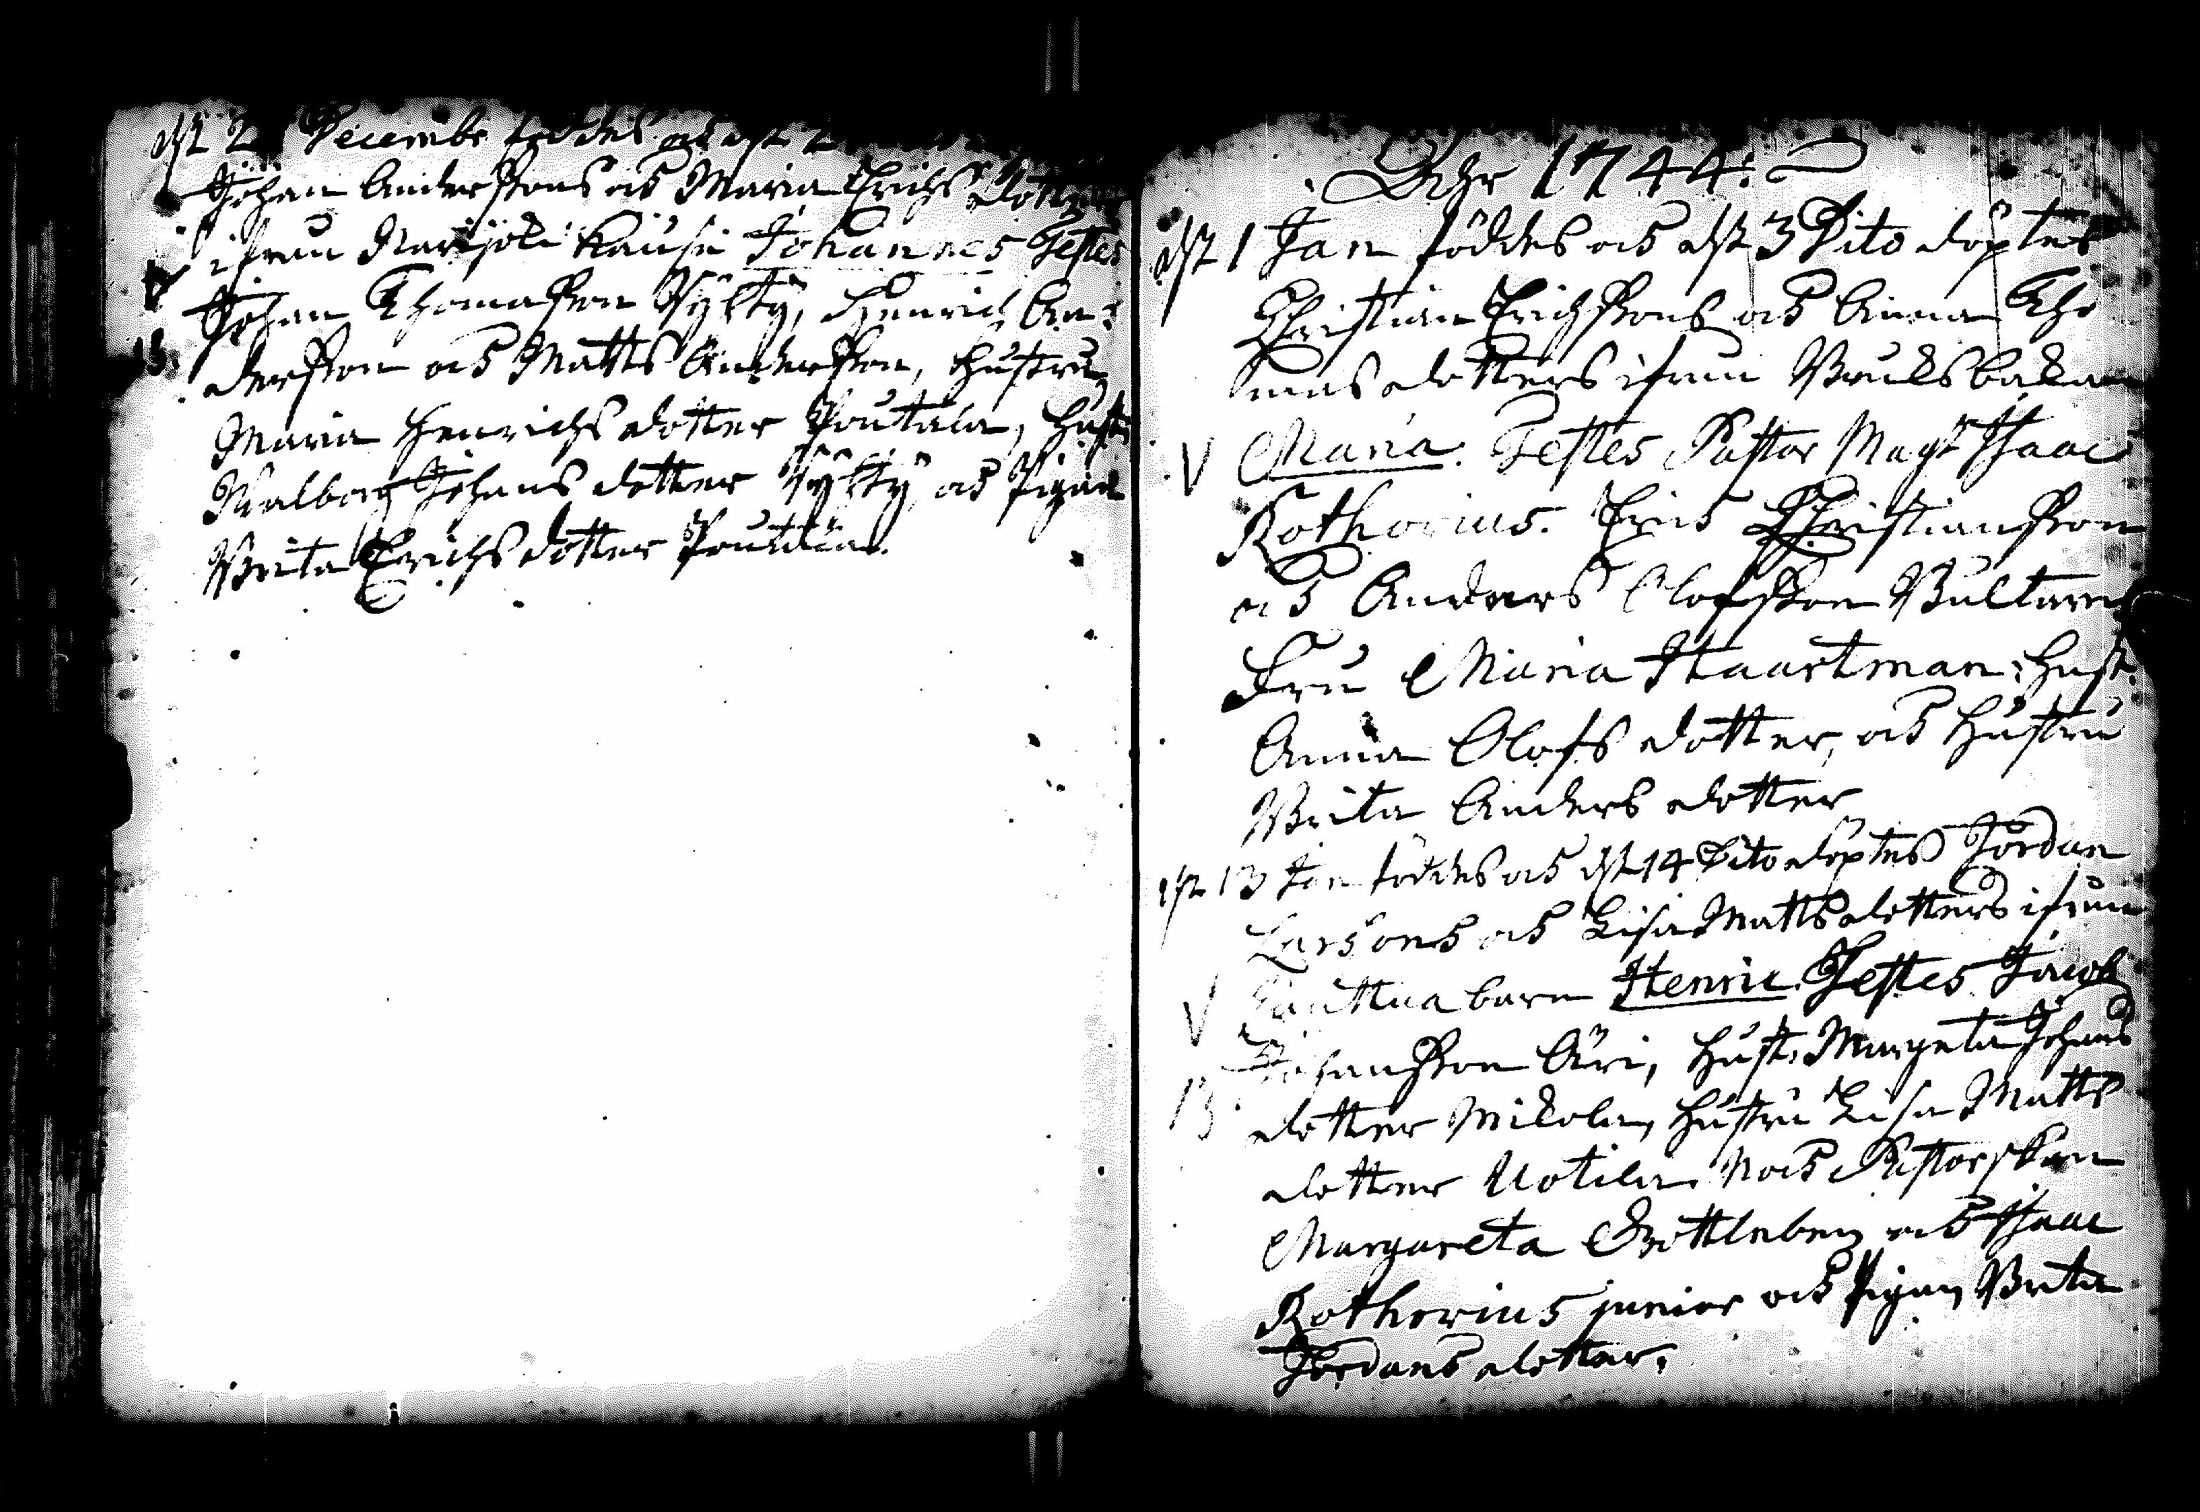 dst 2 Decembr föddes och dst 2
Johan Anderssons och Maria Erichs dotters
ifrån Narfjoki Kausi Johannes Testes
Johan Thomasson Sylty, Henrich An:
dersson och Matts Andersson, hustru
Maria Henrichs dotter Poutala, hust:
Walborg Johans dotter Sylty och Pigan
Brita Erichs dotter Poutala.
Åhr 1744:
dst 1 Jan föddes och dst 3 Dito döptes
Christian Erichssons och Anna Tho
mas dotters ifrån Bruksbakan
V Maria. Testes Pastor Magr Isaac
Rothovius. Eric Christiansson
och Anders Olofsson Bultare
Fru Maria Haartman: hust:
Anna Olofs dotter, och hustru
Brita Anders dotter
dst 13 Jan föddes och dst 14 Dito döptes Jordan
Larsons och Lisa Matts dotters ifrån
V Kauttua barn Henric. Testes Jacob
Johansson Äri, hust: Margeta Johans
13 dotter Mikola, hustru Lisa Matts
dotter Uotila. Noch Pastorskan
Margareta Gottleben och Isaac
Rothovius junior och Pigan Brita
Jordans dotter.